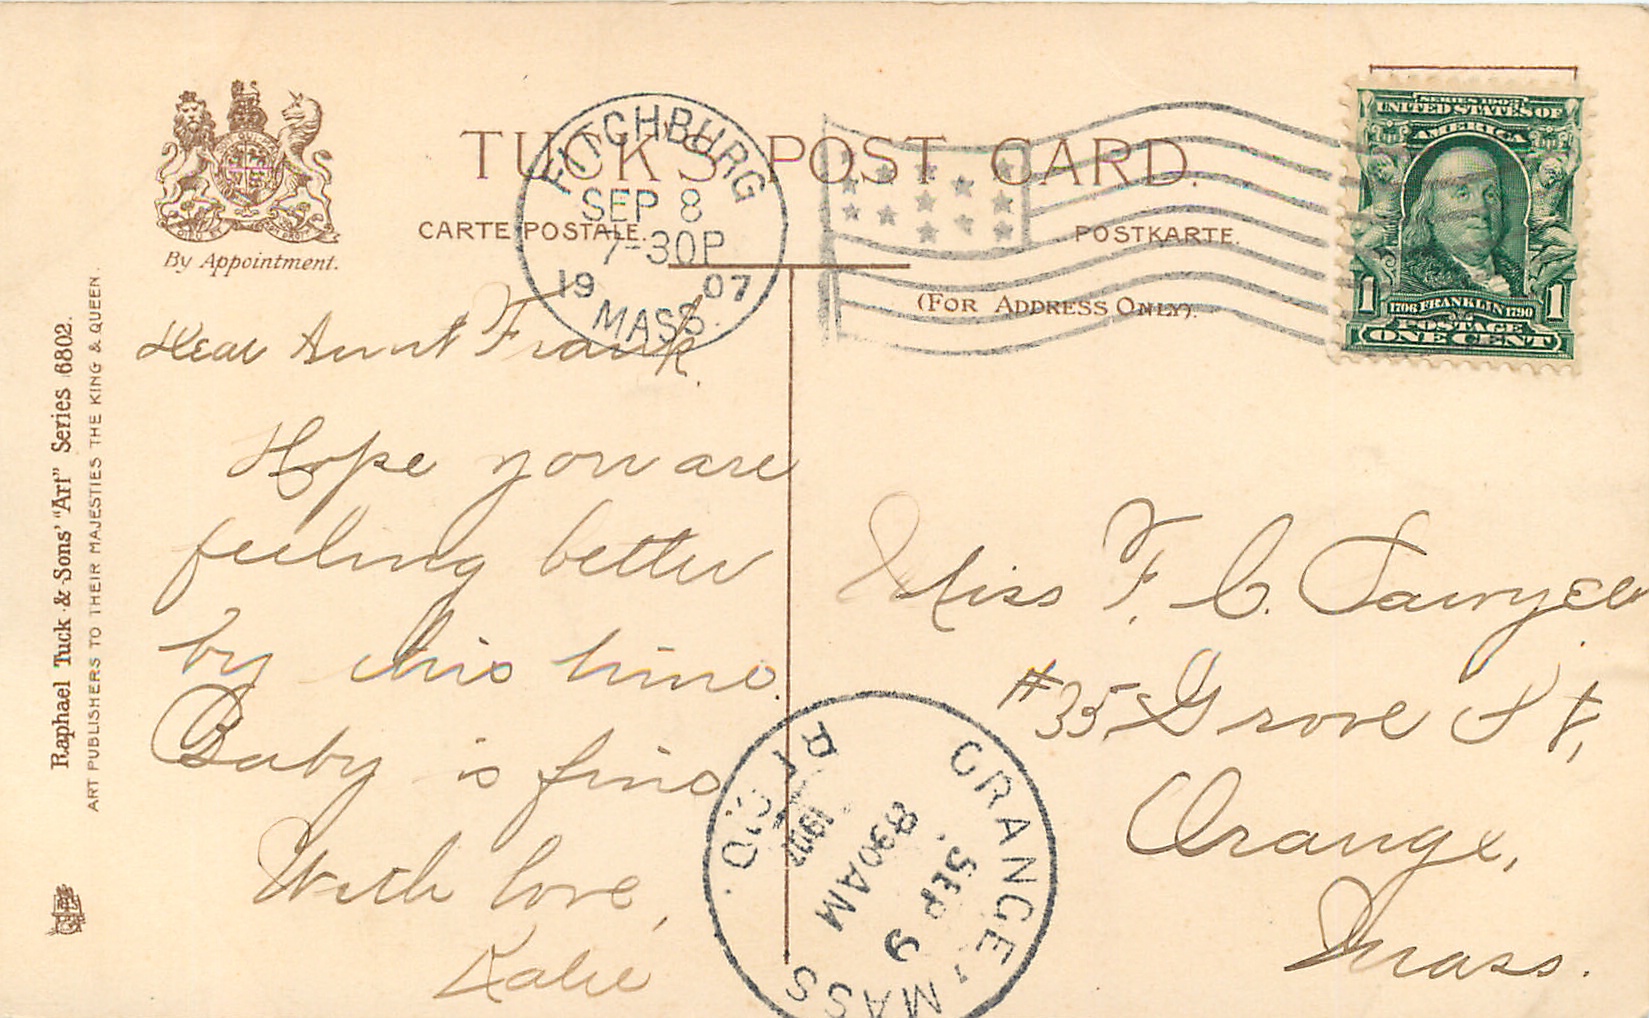 TUCK'S POST CARD.
CARTE POSTALE.
POSTKARTE.
(FOR ADDRESS ONLY).
By Appointment.
FITCHBURG
SEP 8
7-30P
1907
MASS.
SERIES 1902
UNITED STATES OF
AMERICA
1706 FRANKLIN 1790
1 1
POSTAGE
ONE CENT
Raphael Tuck & Sons' "Art" Series 6802.
ART PUBLISHERS TO THEIR MAJESTIES THE KING & QUEEN.
Dear Aunt Frank.
Hope you are
feeling better
by this time.
Baby is fine
With love,
Katie
Miss F. C. Sawyer
#35 Grove St,
Orange,
Mass.
ORANGE, MASS
SEP 9
830AM
1907
REC'D.